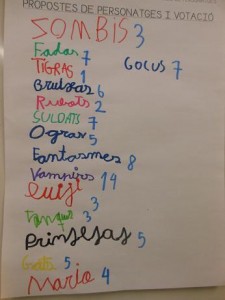 PROPOSTES DE PERSONATGES I VOTACIÓ
SOMBIS 3
Fadas 7
GOCUS 7
TIGRAS 1
Bruixas 6
Robots 2
SULDATS 7
Ogras 5
Fantasmes 8
Vampirs 14
Luiji 3
3
Prinsesas 5
Gats 5
Mario 4